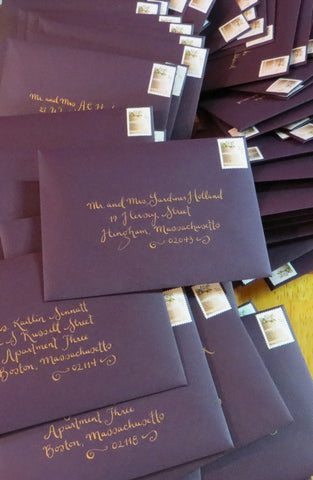 Mr. and Mrs.
Mr. and Mrs. Gardiner Holland
19 Hersey Street
Hingham, Massachusetts
02043
Kaitlin Sennatt
Russell Street
Apartment Three
Boston, Massachusetts
02114
Apartment Three
Boston, Massachusetts
02118